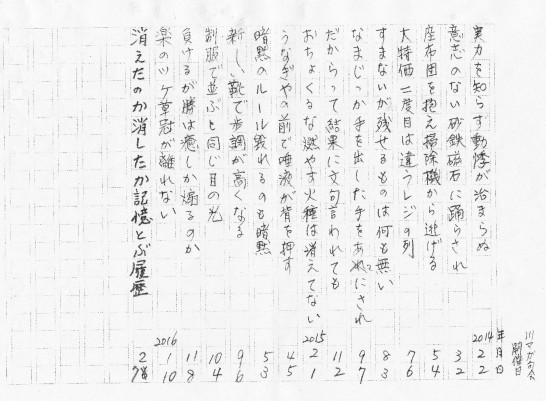 川マガ句会
開催日
年月日
実力を知らす動悸が治まらぬ 2014 2 2
意志のない砂鉄磁石に踊らされ 3 2
座布団を抱え掃除機から逃げる 5 4
大特価二度目は違うレジの列 7 6
すまないが残せるものは何も無い 8 3
なまじっか手を出した手をあてにされ 9 7
だからって結果に文句言われても 11 2
おちょくるな燃やす火種は消えてない 2015 2 1
うなぎやの前で唾液が背を押す 4 5
暗黙のルール毀れるのも暗黙 5 3
新しい靴で歩調が高くなる 9 6
制服で並ぶと同じ目の光 10 4
負けるが勝は癒しか煽るのか 11 8
楽のツケ草冠が離れない 2016 1 10
消えたのか消したか記憶とぶ履歴 2